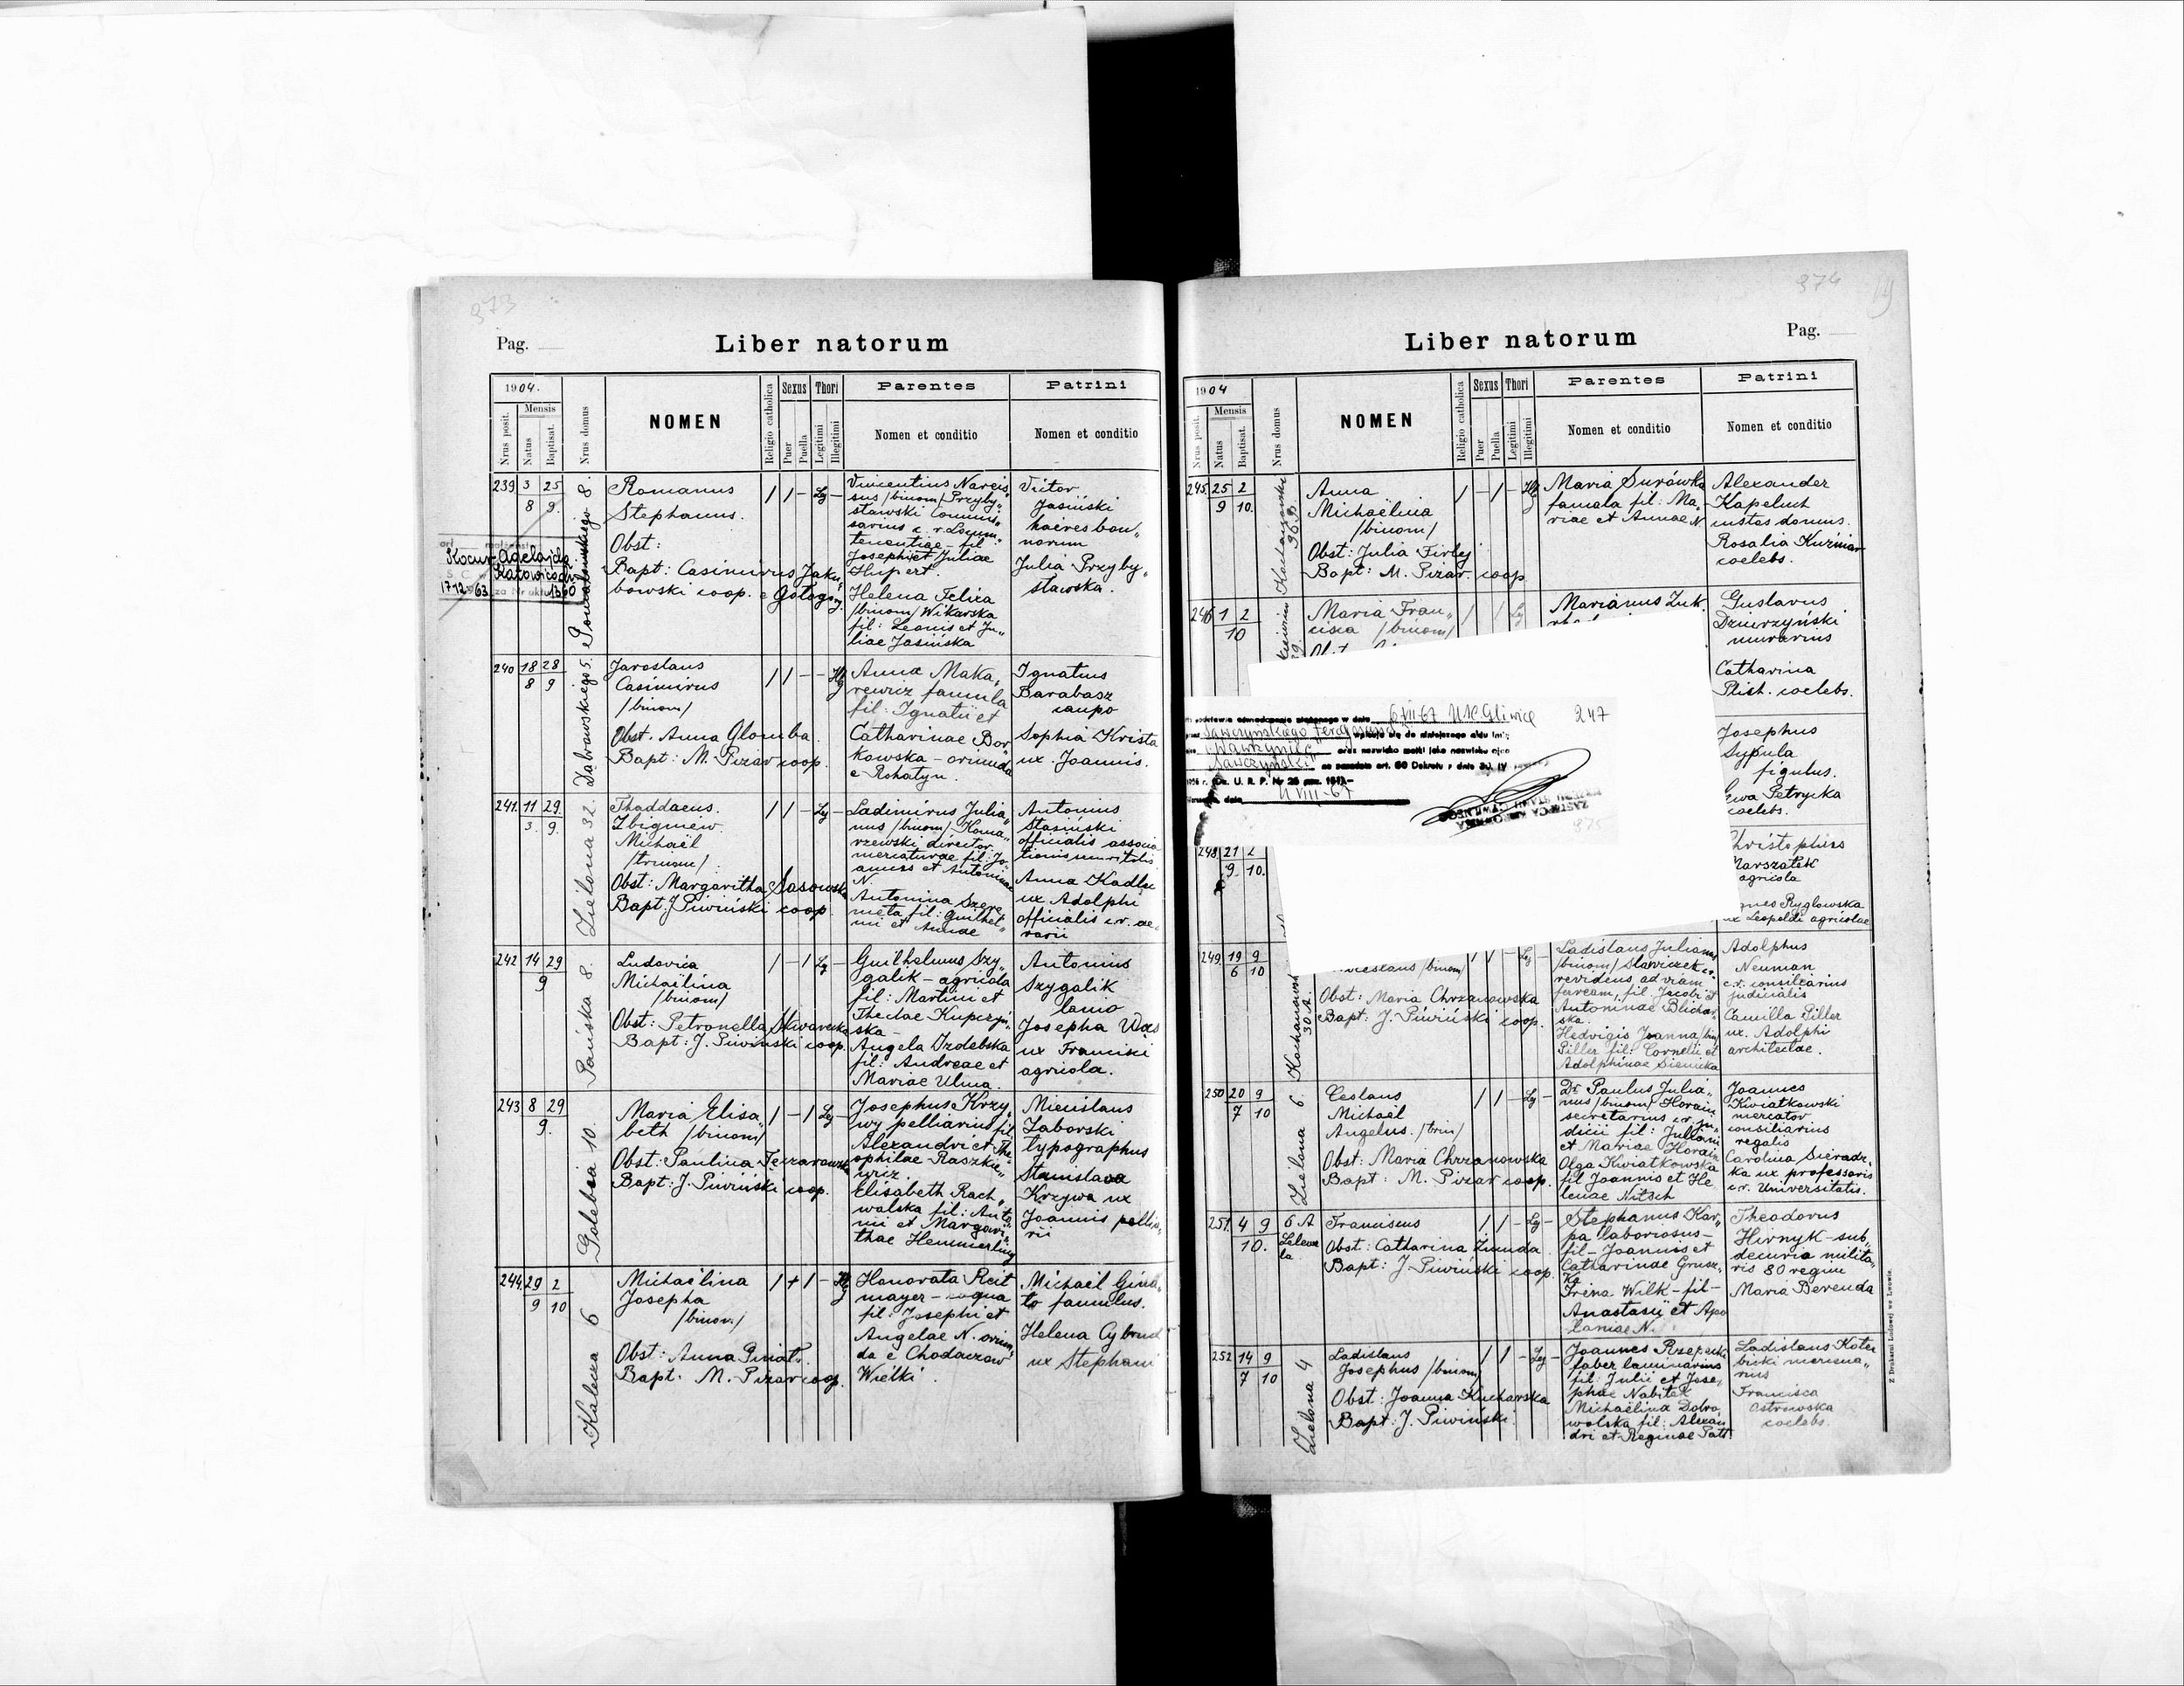 373
Pag.
Liber natorum
1904.
Mensis
Nrus posit.
Natus
Baptisat.
Nrus domus
NOMEN
Religio catholica
Sexus
Puer
Puella
Thori
Legitimi
Illegitimi
Parentes
Nomen et conditio
Patrini
Nomen et conditio
239 3 25
8 9.
Poniatowskiego 8.
Romanus
Stephanus.
Obst:
Bapt: Casimirus Jaku„
bowski coop. e Gołogóry
1 1 - Lg -
Vincentius Narcis„
sus /binom/ Przyby„
sławski Commis„
sarius c. r. Locum„
tenentiae - fil
Josephi et Juliae
Hupert.
Helena Felixa
/binom/ Wikarska
fil: Leonis et Ju„
liae Jasińska
Victor
Jasiński
haeres bon„
norum
Julia Przyby„
sławska.
Kocur Adelajda
Katowice
17-12-63 za Nr aktu 1360
240 18 28
8 9
Dąbrowskiego 5.
Jaroslaus
Casimirus
/binom/
Obst. Anna Glomba
Bapt: M. Pizar coop.
1 1 - - Illg
Anna Maka„
rewicz famula
fil: Ignatii et
Catharinae Bor
kowska - oriunda
e Rohatyn.
Ignatius
Barabasz
caupo
Sophia Krista
ux. Joannis.
241. 11 29
3. 9.
Zielona 32.
Thaddaeus.
Zbigniew.
Michaël
/trinom/
Obst: Margaritha Sasowska
Bapt: J. Piwiński coop.
1 1 - Lg -
Ladimirus Julia„
nus /binom/ Koma„
rzewski director
mercaturae fil: Jo„
annis et Antoninae
N.
Antonina Szere
meta fil: Guilhel„
mi et Annae
Antonius
Stasiński
officialis associa
tionis
Anna Kadlec
ux Adolphi
officialis c.r. ae„
rarii
242 14 29
9
Pańska 8.
Ludovica
Michaëlina
/binom/
Obst: Petronella Skwarecka
Bapt: J. Piwiński coop.
1 - 1 Lg -
Guilhelmus Szy„
galik - agricola
fil: Martini et
Theclae Kupczyń„
ska -
Angela Izdebska
fil: Andreae et
Mariae Ulma.
Antonius
Szygalik
lanio
Josepha Wąs
ux Francisci
agricola.
243 8 29
9.
Gołębia 10.
Maria Elisa„
beth /binom/
Obst: Paulina Tenzarowska
Bapt: J. Piwiński coop.
1 - 1 Lg -
Josephus Krzy„
wy pelliarius fil:
Alexandri et The„
ophilae Raszkie„
wicz.
Elisabeth Rach„
walska fil: Anto
nii et Margari„
thae Hemmerling
Mieceslaus
Zaborski
typographus
Stanislava
Krzywa ux
Joannis pellia„
rii
244. 29 2
9 10
Kalecza 6
Michaëlina
Josepha
/binom/
Obst: Anna Pniat.
Bapt: M. Pizar coop.
1 + 1 - Illg
Honorata Reit
mayer - coqua
fil: Josephi et
Angelae N. oriun„
da e Chodaczow
Wielki.
Michaël Gina„
to famulus.
Helena Cybrud
ux Stephani
374
Liber natorum
Pag.
1904
Mensis
Nrus posit.
Natus
Baptisat.
Nrus domus
NOMEN
Religio catholica
Sexus
Puer
Puella
Thori
Legitimi
Illegitimi
Parentes
Nomen et conditio
Patrini
Nomen et conditio
245. 25 2
9 10.
Anna
Michaëlina
/binom/
Obst: Julia Firlej
Bapt: M. Pizar. coop
1 - 1 - Illg
Maria Surówka
famula fil: Ma„
riae et Annae N
Alexander
Kapeluch
custos domus.
Rosalia Kuźniar
coelebs.
246 1 2
10
Maria Fran„
cisca /binom/
Marianus Zuk.
Gustavus
Dzierzyński
murarius
Catharina
Plish. coelebs.
6 VII-67 USC Gliwice 247
Sawczyńskiego Ferdynanda wpisuje się do niniejszego aktu imię
Wawrzyniec oraz nazwisko matki jako nazwisko ojca
Sawczyński na zasadzie art. 60 Dekretu z dnia 30. IV
(Dz. U. R. P. Nr 25
dnia 11 VIII-67
ZASTĘPCA KIEROWNIKA
URZĘDU STANU CYWILNEGO
375
Josephus
Sypula
figulus.
Ewa Petrycka
coelebs.
248. 21 2
9. 10.
Christophus
Marszałek
agricola
Agnes Ryglowska
ux Leopoldi agricolae
249. 19 9
6 10
Kochanowski
30 A.
/binom/
Obst: Maria Chrzanowska
Bapt: J. Piwiński coop.
1 1 - Lg -
Ladislaus Julianus
/binom/ Sławiczek c.r.
revidens ad viam
ferream, fil. Jacobi et
Antoninae Blichar„
ska.
Hedvigis Joanna /bin/
Piller fil: Cornelii et
Adolphinae Sienicka
Adolphus
Neuman
c.r. consiliarius
judicialis
Camilla Piller
ux. Adolphi
architectae.
250 20 9
7 10
Zielona 6.
Ceslaus
Michaël
Angelus. /trin/
Obst: Maria Chrzanowska
Bapt: M. Pizar coop.
1 1 - Lg -
Dr. Paulus Julia„
nus /binom/ Horain
secretarius c.r. ju„
dicii fil: Juliani
et Mariae Horain
Olga Kwiatkowska
fil Joannis et He
lenae Nitsch
Joannes
Kwiatkowski
mercator
consiliarius
regalis
Carolina Sieradz„
ka ux professoris
c.r. Universitatis.
251. 4 9
10.
6 A
Lelewe
la
Franciscus
Obst: Catharina Zunda
Bapt: J Piwiński coop.
1 1 - Lg -
Stephanus Kar„
pa laboriosus -
fil - Joannis et
Catharinae Grusz„
ka
Irena Wilk - fil -
Anastasii et Apo
laniae N.
Theodorus
Hirnyk - sub„
decurio milita„
ris 80 regim
Maria Berenda
252 14 9
7 10
Zielona 4
Ladislaus
Josephus /binom/
Obst: Joanna Kucharska
Bapt: J. Piwiński.
1 1 - Lg -
Joannes Rzepecki
faber laminarius
fil: Julii et Jose„
phae Nabitek
Michaëlina Dobro„
wolska fil: Alexan
dri et Reginae Patt.
Ladislaus Kote
bicki mercena„
rius
Francisca
Ostrowska
coelebs.
Z Drukarni Ludowej we Lwowie.